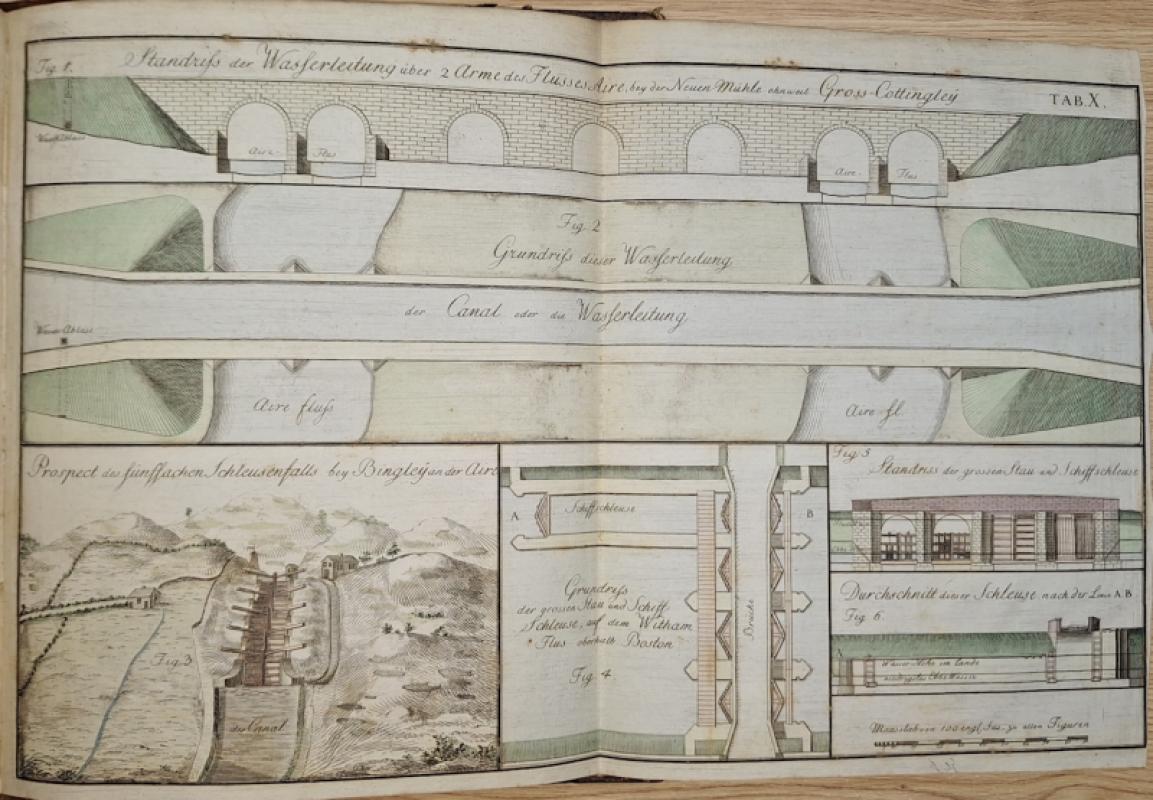 Fig. 1.
Standriss der Wasserleitung über 2 Arme des Flusses Aire, bey der Neuen Mühle ohnweit Gross-Cottingley
TAB. X.
Aire-
Flus
Aire-
Flus
Fig. 2
Grundriss dieser Wasserleitung
der Canal oder die Wasserleitung
Wasser Ablass
Aire fluss
Aire fl.
Prospect des fünffachen Schleusenfalls bey Bingley an der Aire
Fig 3
der Canal
A
Schiffschleuse
B
Grundriss
der grossen Stau und Schiff-
Schleuse, auf dem Witham
Flus oberhalb Boston
Fig. 4.
Brücke
Fig 5
Standriss der grossen Stau und Schiffschleuse
Durchschnitt dieser Schleuse nach der Linie A B
Fig 6.
A
Wasser Höhe im Lande
Maasstab von 100 engl. Fus. zu allen Figuren